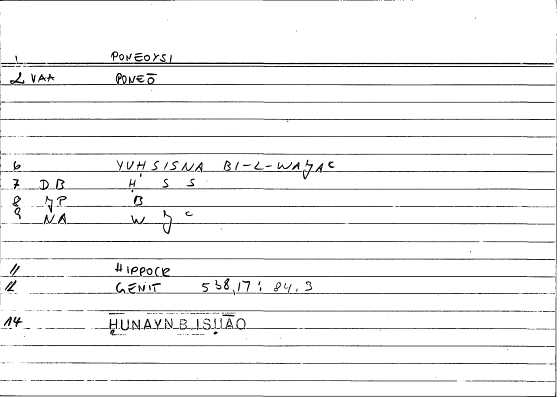 1 PONEOYSI
2 VAA PONEŌ
6 YUḤSISNA BI-L-WAǦAʿ
7 DB Ḥ S S
8 ǦP B
9 NA W Ǧ ʿ
11 HIPPOCR
12 GENIT 538,17: 84.3
14 ḤUNAYN B. ISḤĀQ